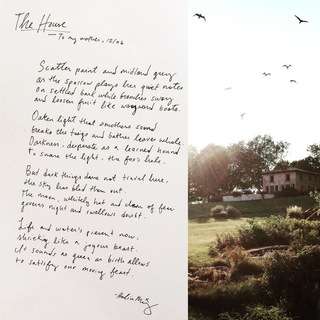 The House
To my mother, 12/06
Scatter paint and midland grey
as the sparrow plays her quiet notes
on settled bark while branches sway
and loosen fruit like wayward boats.
Oaken light that smothers sound
breaks the twigs and bathes leaves whole.
Darkness, desperate as a learned hound
to snare the light, the fox's hole.
But dark things dare not travel here,
the sky has bled them out.
The moon, whitely hot and clean of fear
governs night and swallows doubt.
Life and water's present now,
shrieking like a joyous beast.
It sounds as green as birth allows
to satisfy our moving feast.